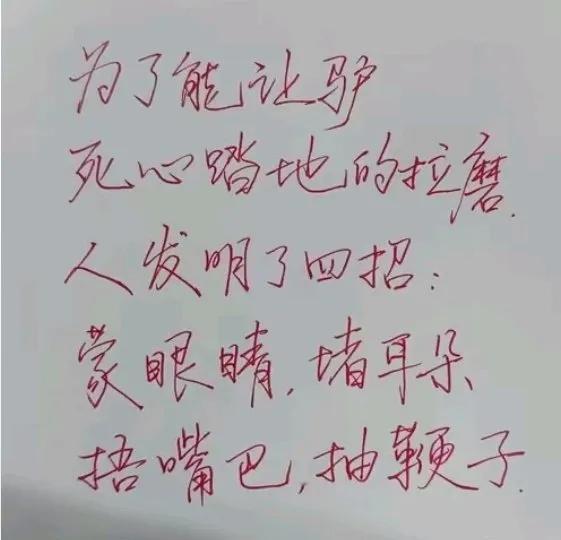 为了能让驴
死心踏地的拉磨.
人发明了四招:
蒙眼睛,堵耳朵
捂嘴巴,抽鞭子.